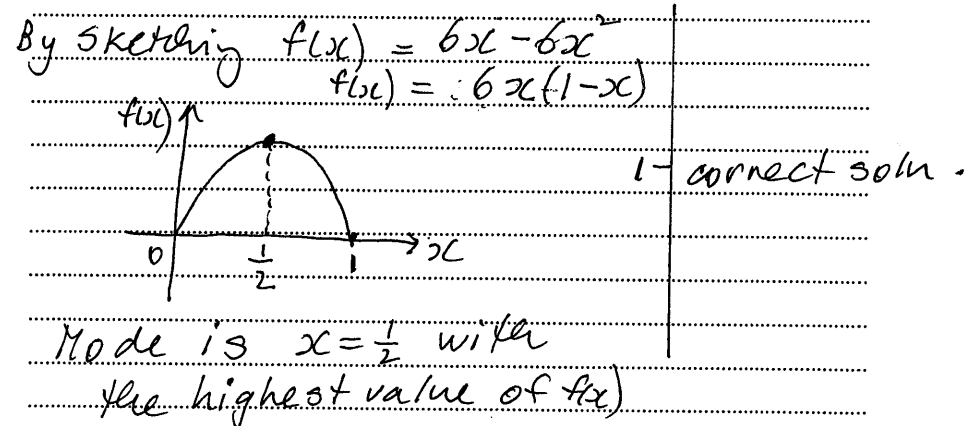 By sketching f(x) = 6x - 6x²
f(x) = 6x(1-x)
f(x)
1 - correct soln.
0 1/2 1 x
Mode is x = 1/2 with
the highest value of f(x)